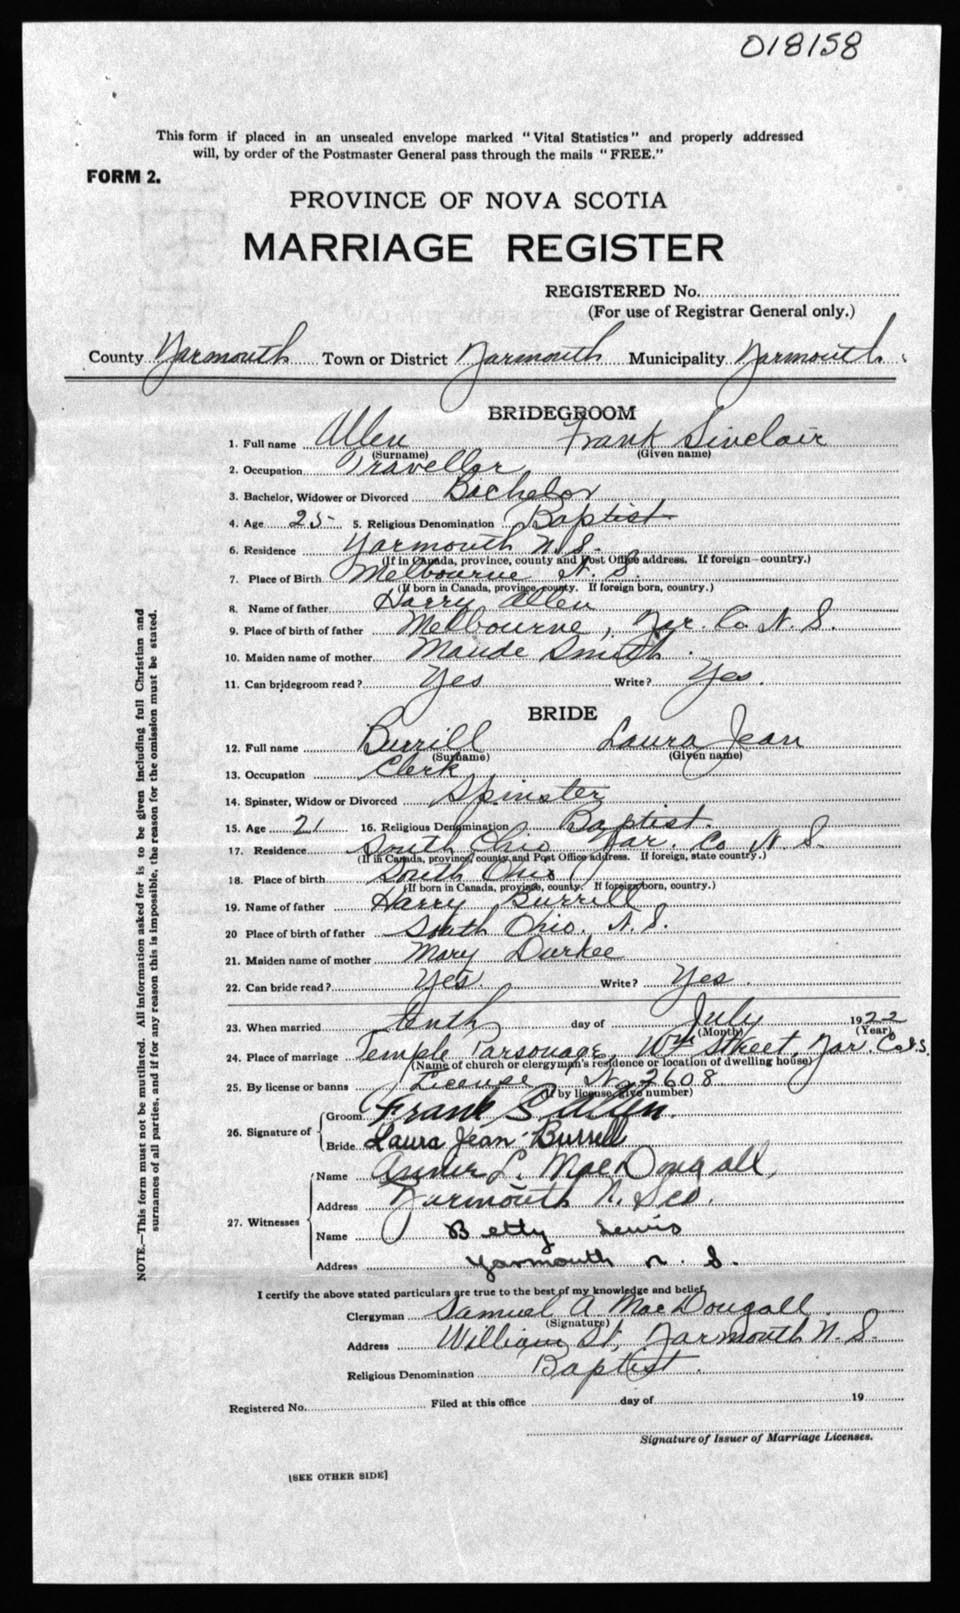 018158
This form if placed in an unsealed envelope marked "Vital Statistics" and properly addressed
will, by order of the Postmaster General pass through the mails "FREE."
FORM 2.
PROVINCE OF NOVA SCOTIA
MARRIAGE REGISTER
REGISTERED No.
(For use of Registrar General only.)
County Yarmouth Town or District Yarmouth Municipality Yarmouth
BRIDEGROOM
1. Full name Allen Frank Sinclair
(Surname) (Given name)
2. Occupation Traveller
3. Bachelor, Widower or Divorced Bachelor
4. Age 25 5. Religious Denomination Baptist
6. Residence Yarmouth N.S.
(If in Canada, province, county and Post Office address. If foreign—country.)
7. Place of Birth Melbourne N. S.
(If born in Canada, province, county. If foreign born, country.)
8. Name of father Harry Allen
9. Place of birth of father Melbourne, Yar. Co. N. S.
10. Maiden name of mother Maude Smith.
11. Can bridegroom read? Yes Write? Yes.
BRIDE
12. Full name Burrill Laura Jean
(Surname) (Given name)
13. Occupation Clerk
14. Spinster, Widow or Divorced Spinster
15. Age 21 16. Religious Denomination Baptist.
17. Residence South Ohio Yar. Co N. S.
(If in Canada, province, county and Post Office address. If foreign, state country.)
18. Place of birth South Ohio
(If born in Canada, province, county. If foreign born, country.)
19. Name of father Harry Burrill
20 Place of birth of father South Ohio. N. S.
21. Maiden name of mother Mary Durkee
22. Can bride read? Yes. Write? Yes.
23. When married tenth day of July 1922
(Month) (Year)
24. Place of marriage Temple Parsonage, Wm Street, Yar. Co N.S.
(Name of church or clergyman's residence or location of dwelling house)
25. By license or banns License No 2608
(If by license, give number)
26. Signature of Groom Frank S. Allen.
Bride Laura Jean Burrell
27. Witnesses
Name L. MacDougall,
Address Yarmouth N. Sco.
Name Betty Lewis
Address Yarmouth N. S.
I certify the above stated particulars are true to the best of my knowledge and belief.
Clergyman Samuel A MacDougall.
(Signature)
Address William St, Yarmouth N. S.
Religious Denomination Baptist.
Registered No. Filed at this office day of 19
Signature of Issuer of Marriage Licenses.
[SEE OTHER SIDE]
NOTE.—This form must not be mutilated. All information asked for is to be given including full Christian and
surnames of all parties, and if for any reason this is impossible, the reason for the omission must be stated.